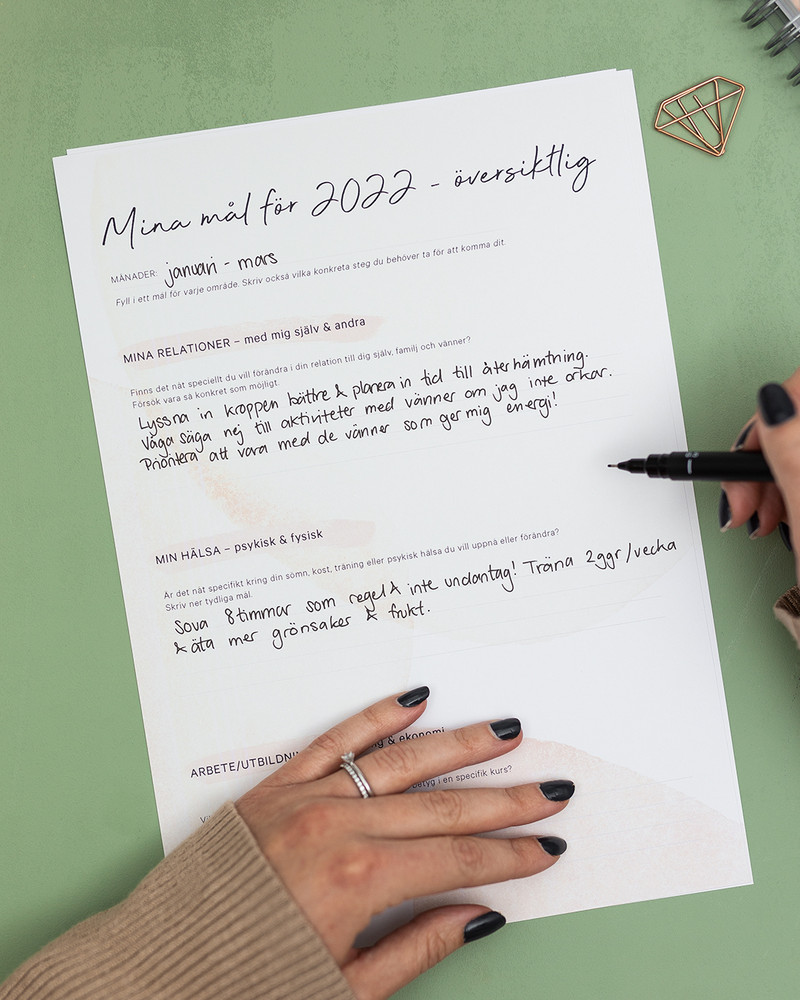 Mina mål för 2022 - översiktlig
MÅNADER: januari - mars
Fyll i ett mål för varje område. Skriv också vilka konkreta steg du behöver ta för att komma dit.
MINA RELATIONER – med mig själv & andra
Finns det nåt speciellt du vill förändra i din relation till dig själv, familj och vänner?
Försök vara så konkret som möjligt.
Lyssna in kroppen bättre & planera in tid till återhämtning.
Våga säga nej till aktiviteter med vänner om jag inte orkar.
Prioritera att vara med de vänner som ger mig energi!
MIN HÄLSA – psykisk & fysisk
Är det nåt specifikt kring din sömn, kost, träning eller psykisk hälsa du vill uppnå eller förändra?
Skriv ner tydliga mål.
Sova 8 timmar som regel & inte undantag! Träna 2ggr/vecka
& äta mer grönsaker & frukt.
ARBETE/UTBILDNI & ekonomi
betyg i en specifik kurs?